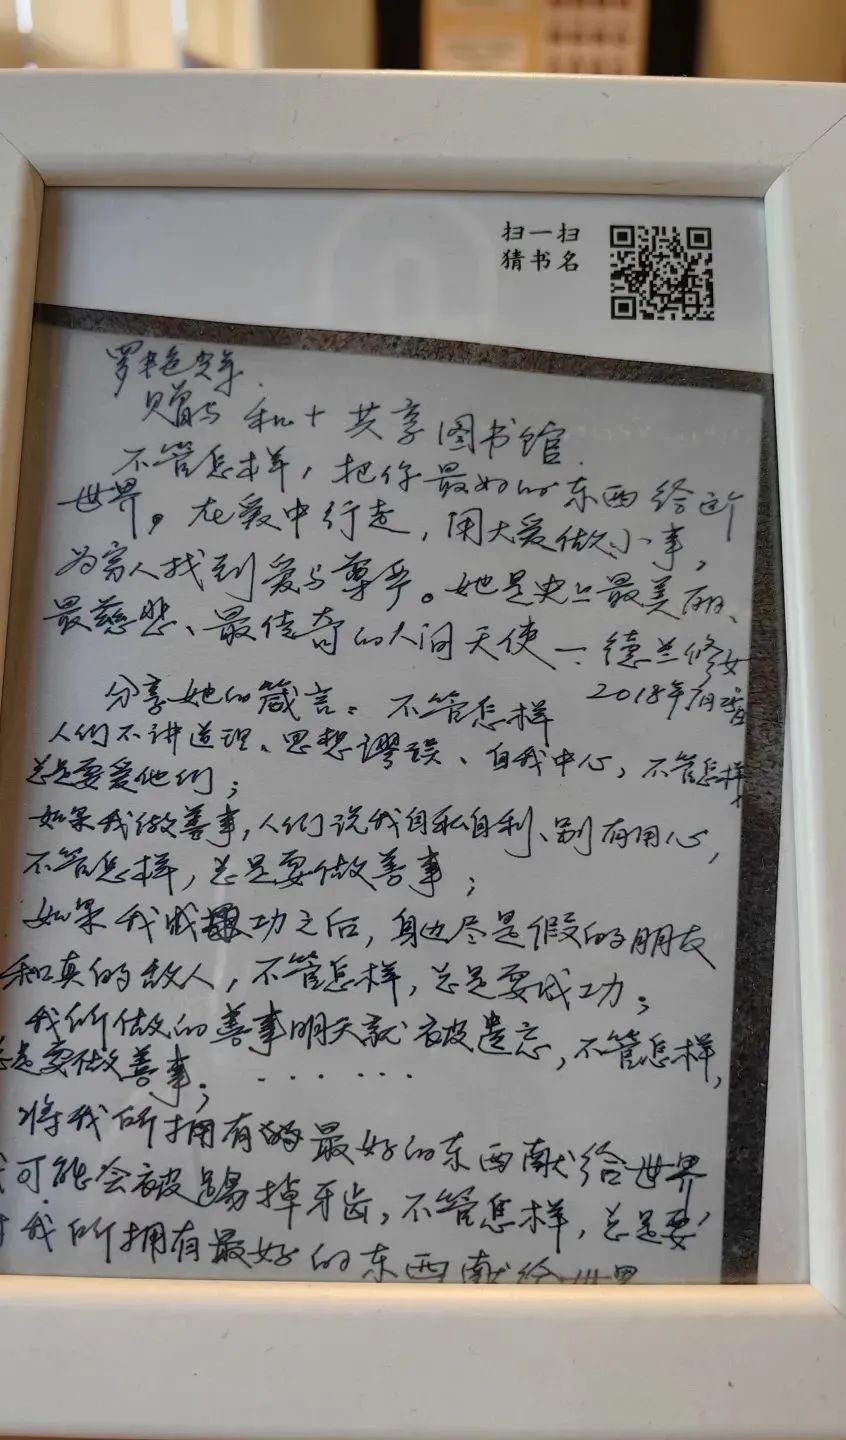 扫一扫
猜书名
赠与 和+ 共享图书馆
不管怎样,把你最好的东西给这
世界。在爱中行走,用大爱做小事,
为穷人找到爱与尊严。她是史上最美丽、
最慈悲、最传奇的人间天使一:德兰修女
2018年
分享她的箴言:不管怎样
人们不讲道理、思想谬误、自我中心,不管怎样,
总是要爱他们;
如果我做善事,人们说我自私自利、别有用心,
不管怎样,总是要做善事;
如果我成功之后,身边尽是假的朋友
和真的敌人,不管怎样,总是要成功;
我所做的善事明天就被遗忘,不管怎样,
总是要做善事;······
将我所拥有的最好的东西献给世界
可能会被踢掉牙齿,不管怎样,总是要
我所拥有最好的东西献给世界